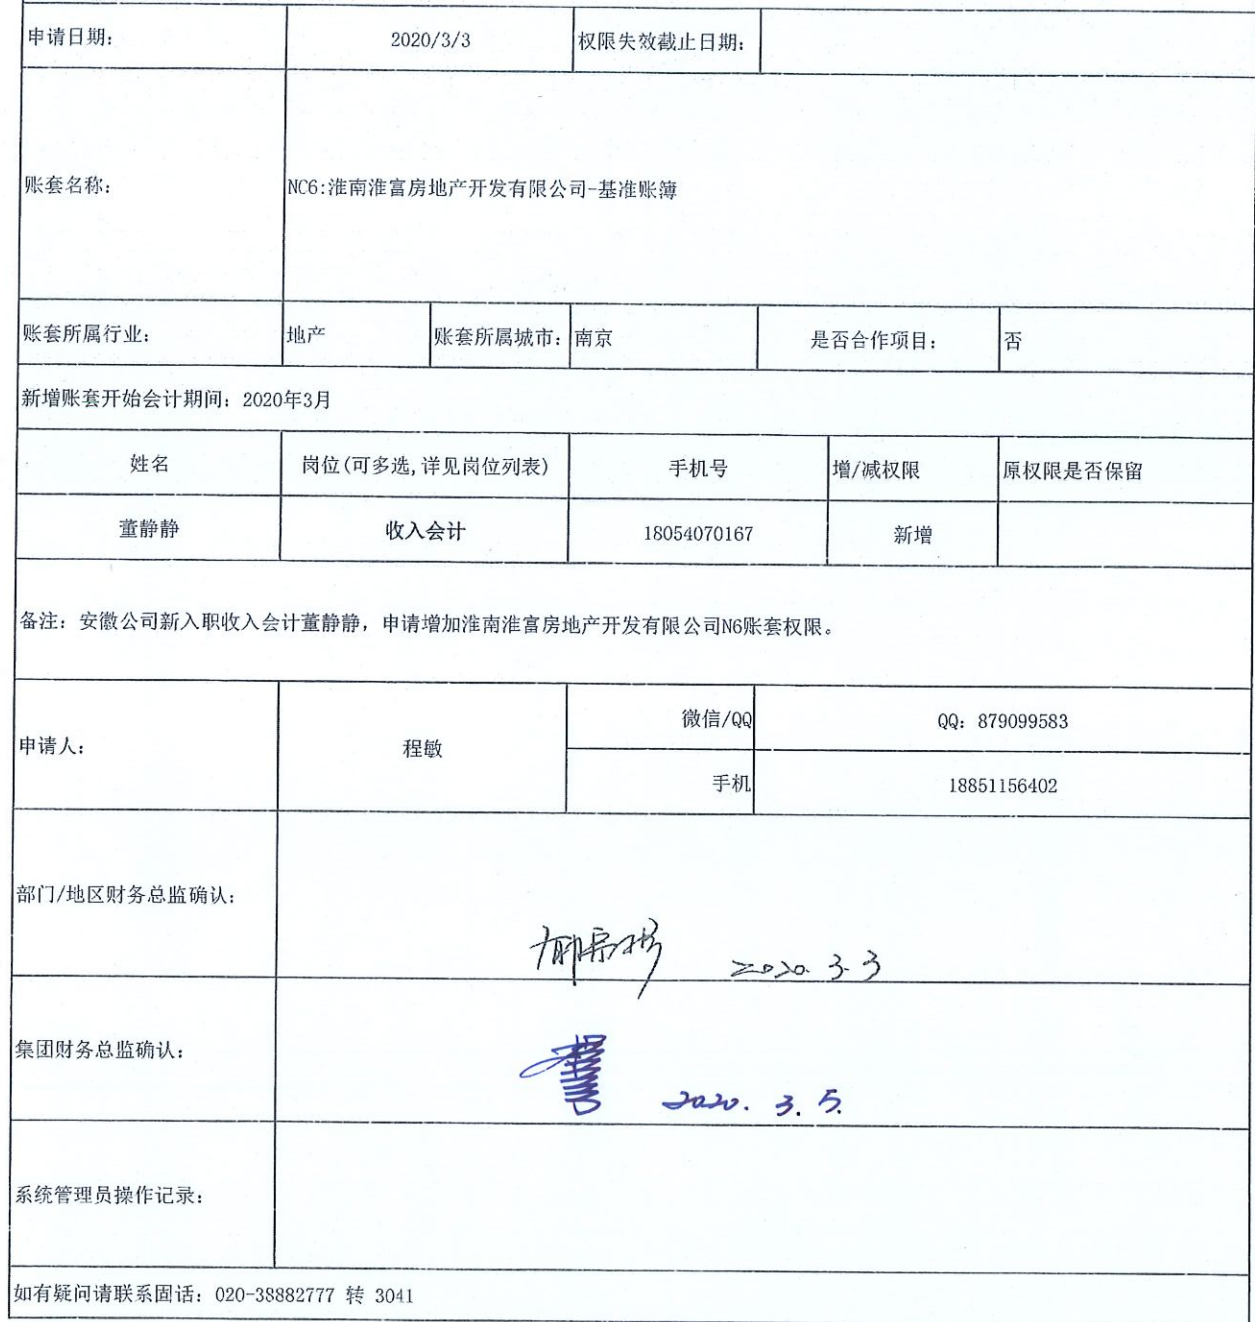 申请日期: 2020/3/3 权限失效截止日期:
账套名称: NC6:淮南淮富房地产开发有限公司-基准账簿
账套所属行业: 地产 账套所属城市: 南京 是否合作项目: 否
新增账套开始会计期间: 2020年3月
姓名 岗位(可多选,详见岗位列表) 手机号 增/减权限 原权限是否保留
董静静 收入会计 18054070167 新增
备注: 安徽公司新入职收入会计董静静, 申请增加淮南淮富房地产开发有限公司N6账套权限。
申请人: 程敏 微信/QQ QQ: 879099583
手机 18851156402
部门/地区财务总监确认:
2020.3.3
集团财务总监确认:
2020.3.5.
系统管理员操作记录:
如有疑问请联系固话: 020-38882777 转 3041